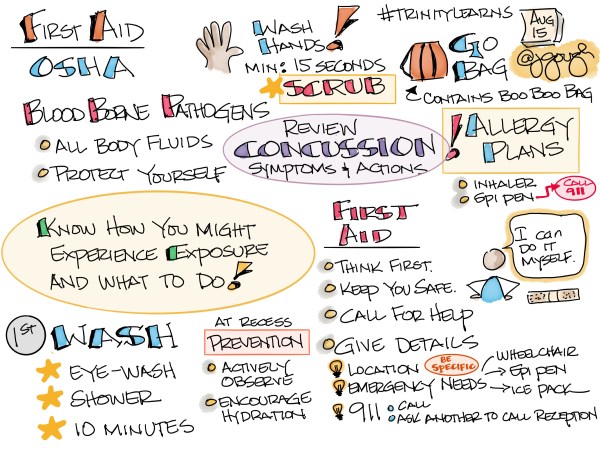 First Aid
OSHA
Wash
Hands!
Min: 15 seconds
Scrub
#TrinityLearns
Aug
15
@jgough
Go
Bag
Contains Boo Boo Bag
Blood Borne Pathogens
All Body Fluids
Protect Yourself
Review
Concussion
Symptoms & Actions
! Allergy
Plans
Inhaler
Epi pen
Call
911
Know How You Might
Experience Exposure
and what to do!
First
Aid
Think First.
Keep You Safe.
Call For Help
Give Details
Location
Be
Specific
Wheelchair
Epi pen
Emergency Needs
Ice pack
911
Call
Ask another to call reception
I can
do it
myself.
1st
Wash
Eye-wash
Shower
10 minutes
At Recess
Prevention
Actively
Observe
Encourage
Hydration